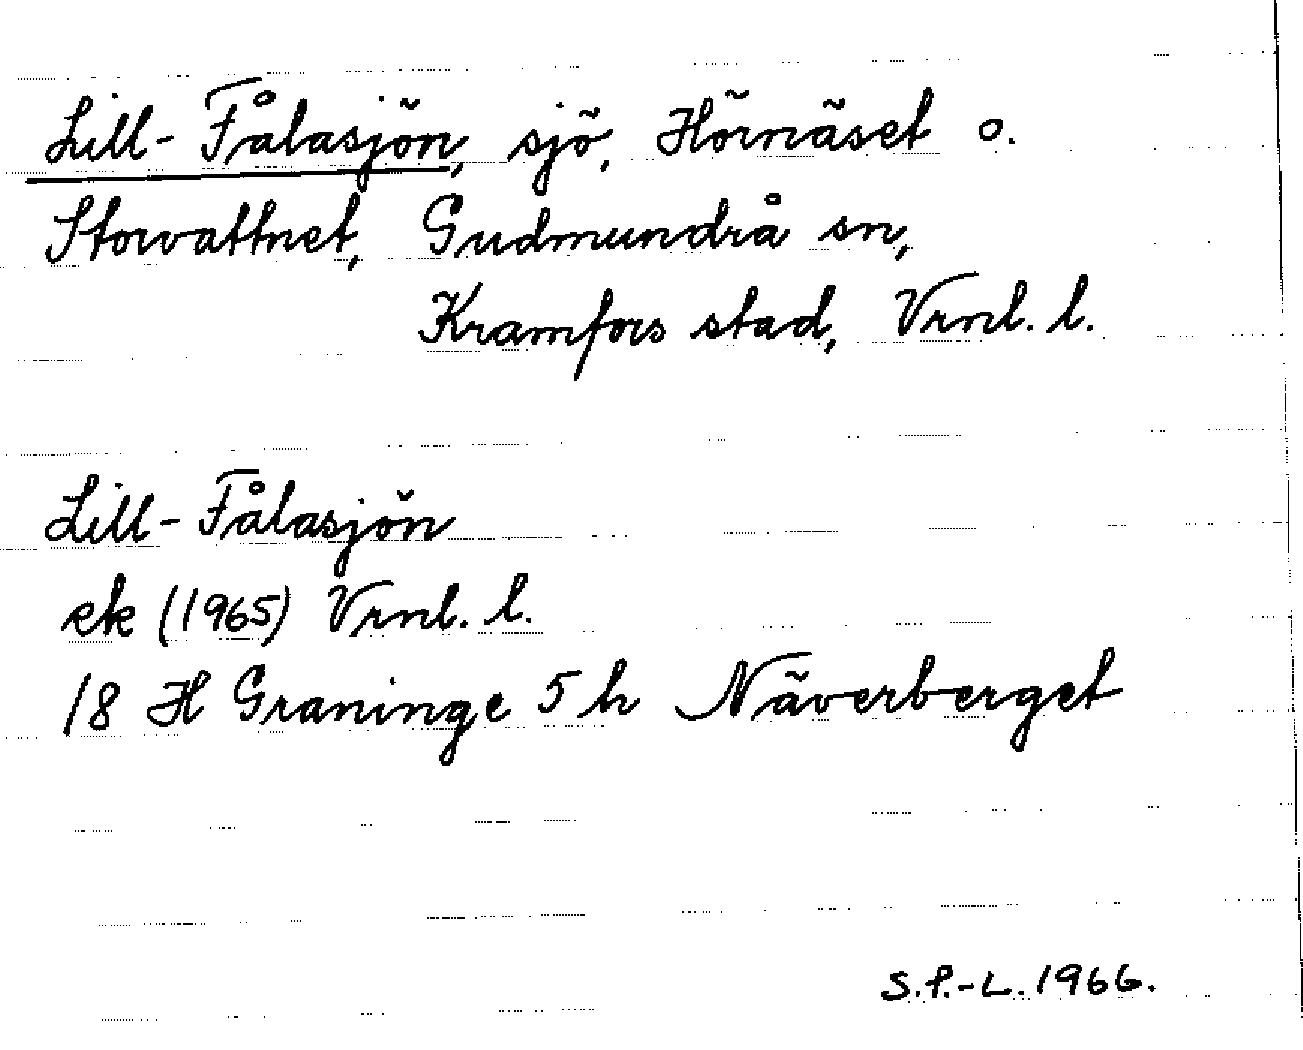 Lill-Fålasjön, sjö, Hörnäset o.
Storvattnet, Gudmundrå sn,
Kramfors stad, Vrnl. l.
Lill-Fålasjön
ek (1965) Vrnl. l.
18 H Graninge 5 h Näverberget
S.P.-L. 1966.